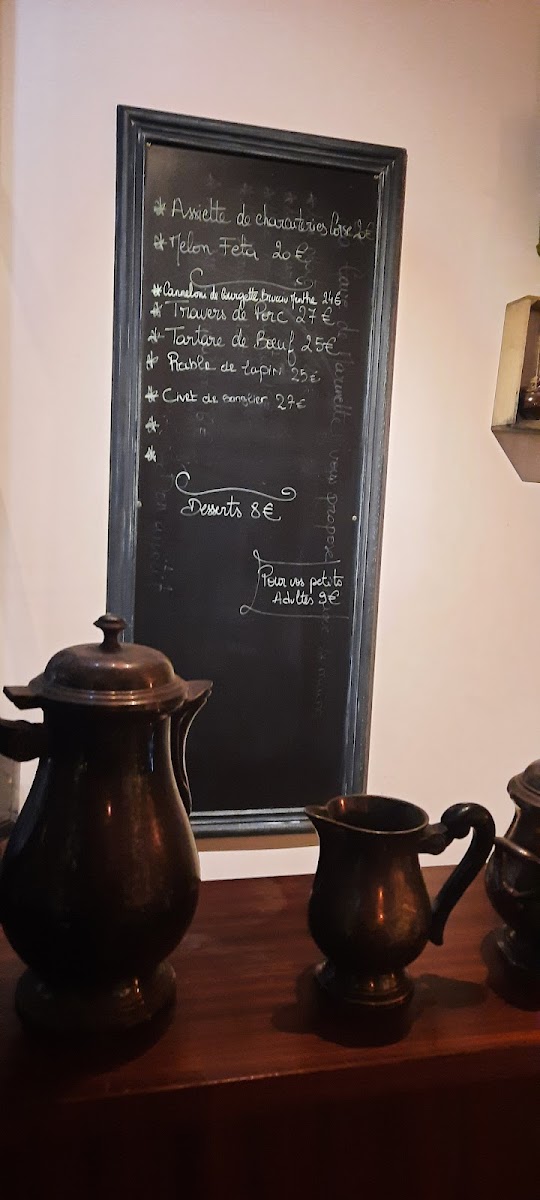 * Assiette de charcuteries Corse 2€
* Melon Feta 20€
* Canneloni de Courgette Brocciu Menthe 24€
* Travers de Porc 27€
* Tartare de Bœuf 25€
* Rable de Lapin 25€
* Civet de sanglier 27€
*
*
Desserts 8€
Pour vos petits
Adultes 9€